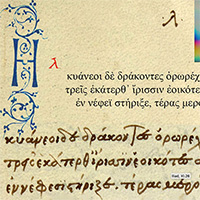 λ
λ
κυάνεοι δὲ δράκοντες ὀρωρέχ
τρεῖς ἑκάτερθ' ἴρισσιν ἐοικότε
ἐν νέφεϊ στήριξε, τέρας μερό
κυάνεοι δὲ δράκοντες ὀρωρέχ
τρεῖς ἑκάτερθ ἴρισσιν ἐοικότε
ἐν νέφεϊ στήριξε. τέρας μερό